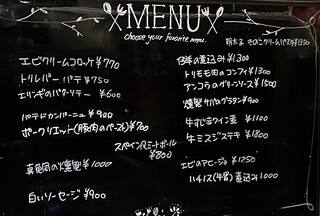 MENU
choose your favorite menu.
明太子ときのこクリームパスタ ¥1350
エビクリームコロッケ ¥770
トリレバーパテ ¥750
エリンギのバターソテー ¥600
パテドカンパーニュ ¥900
ポークリエット(豚肉のペースト) ¥700
スペイン風ミートボール
¥800
真鯛の燻製 ¥1000
白いソーセージ ¥900
仔羊の煮込み ¥1300
トリモモ肉のコンフィ ¥1300
アンコウのグリーンソース ¥1500
燻製サバのグラタン ¥900
牛すじ赤ワイン煮 ¥1300
牛ミスジステーキ ¥1800
エビのアヒージョ ¥1250
ハチノス(牛胃)煮込み ¥1000